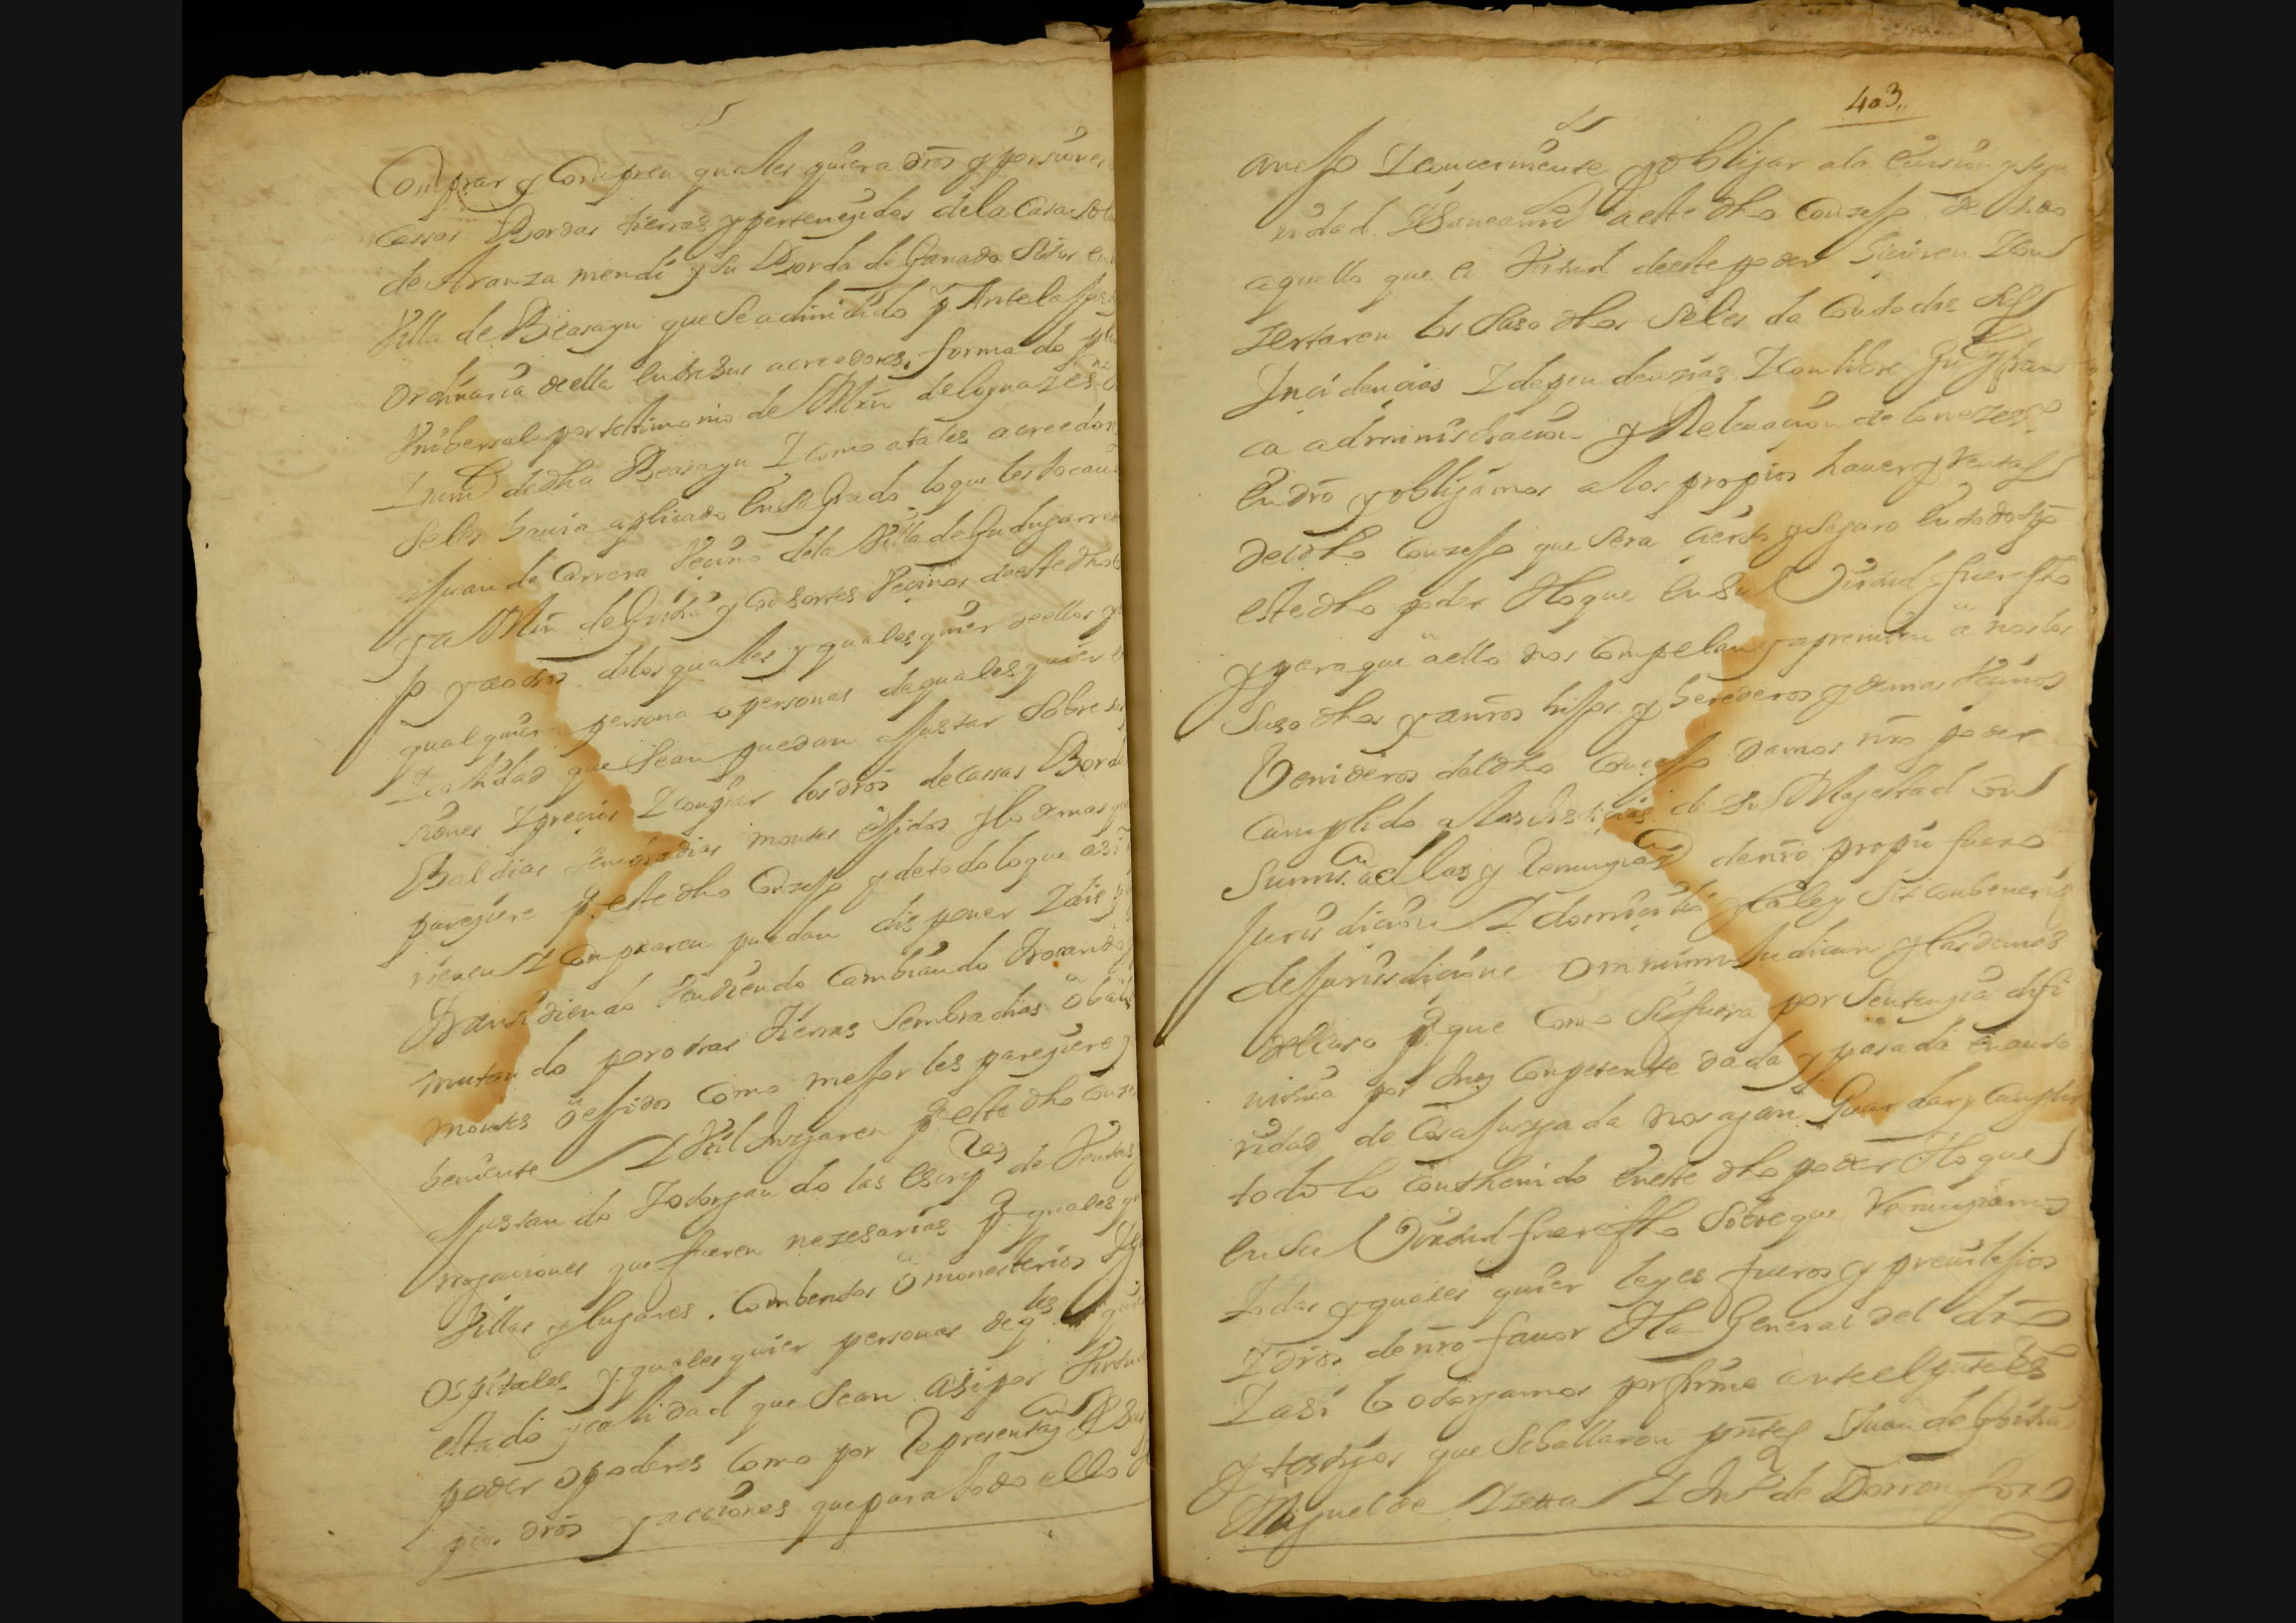 Comprar y Compren quales quiera dros y porciones
cassas Bordas tierras y pertenezidos dela Casa sola
de Aranza mendi y su Borda de Ganado sitos en
Villa de Beasayn que se a dividido p Ante la Jus
ordinaria de ella entre sus acreedores, formado pley
Vnibersal por testimonio de Mrn de
I num de dha Beasayn I como atales acreedor
se les havia aplicado en su Grado lo que les tocava
Juan de Carrera Vecino dela Villa de Gudugarret
y a Mrn de Guridi y Consortes Vecinos de este dho
jo y a otros delos quales y quales quier de ellos y
qual quier persona o personas de quales quier
I calidad que sean puedan Ajustar sobre sus
I precios I conziar los dros de cassas Borda
Baldias sembradias montes exidos y lo demas q
pareziere p este dho Conzejo y de todo lo que asi
I Compraren puedan dis poner I dis
Vendiendo Cambiando Trocando
mutando por otras tierras sembradias o bald
montes o exidos Como mejor les pareziere y
beniente I Vtil Juzgaren p este dho conze
Ajustando I otorgando las Escrip.ras de Ventas
que fueren nezesarias p quales q
Villas y lugares. Combentos o monesterios
Ospitales y quales quier personas de q.les quie
estado y calidad que sean asi por Virtud
poder o poderes Como por representaz.on
pios dros y acciones que para todo ello
403
anejo y obligar ala
ridad I Saneami.o a este dho Conzejo de todo
aquello que en Virtud de este poder hizieren I con
zertaren los suso dhos se les da Con todas sus
Incidencias I dependenzias I con libre fran
ca administracion y Relevacion de lo nezess.o
en dro y obligamos a los propios haver y rentas
del dho Conzejo que sera cierto y seguro en todo tpo
este dho poder I lo que en su Virtud fuere fho
y para que a ello nos Compelan y apremien a nos los
suso dhos y a nros hijos y herederos y demas Vecinos
Venideros del dho Concejo Damos nro poder
Cumplido a las Justicias de su Majestad con
sumis.on a ellas y renunziaz.on de nro propio fuero
Jurisdicion I domicilio y la ley Sit conbenerit
de Jurisdicione omnium Judicum y las demas
del caso p que Como si fuera por Sentenzia difi
nitiva por Juez Competente dada y pasada en auto
ridad de Cosa Juzgada nos agan Guardar y Cumplir
todo lo Conthenido en este dho poder I lo que
en su Virtud fuere fho Sobre que renunziamos
todas y quales quier leyes fueros y previlejios
I dros de nro favor I la General del dro
I asi lo otorgamos por firme ante el pnte Ess.no
y testigos que se hallaron pntes Juan de Guridi
Miguel de I Ju.o de Dorronsoro